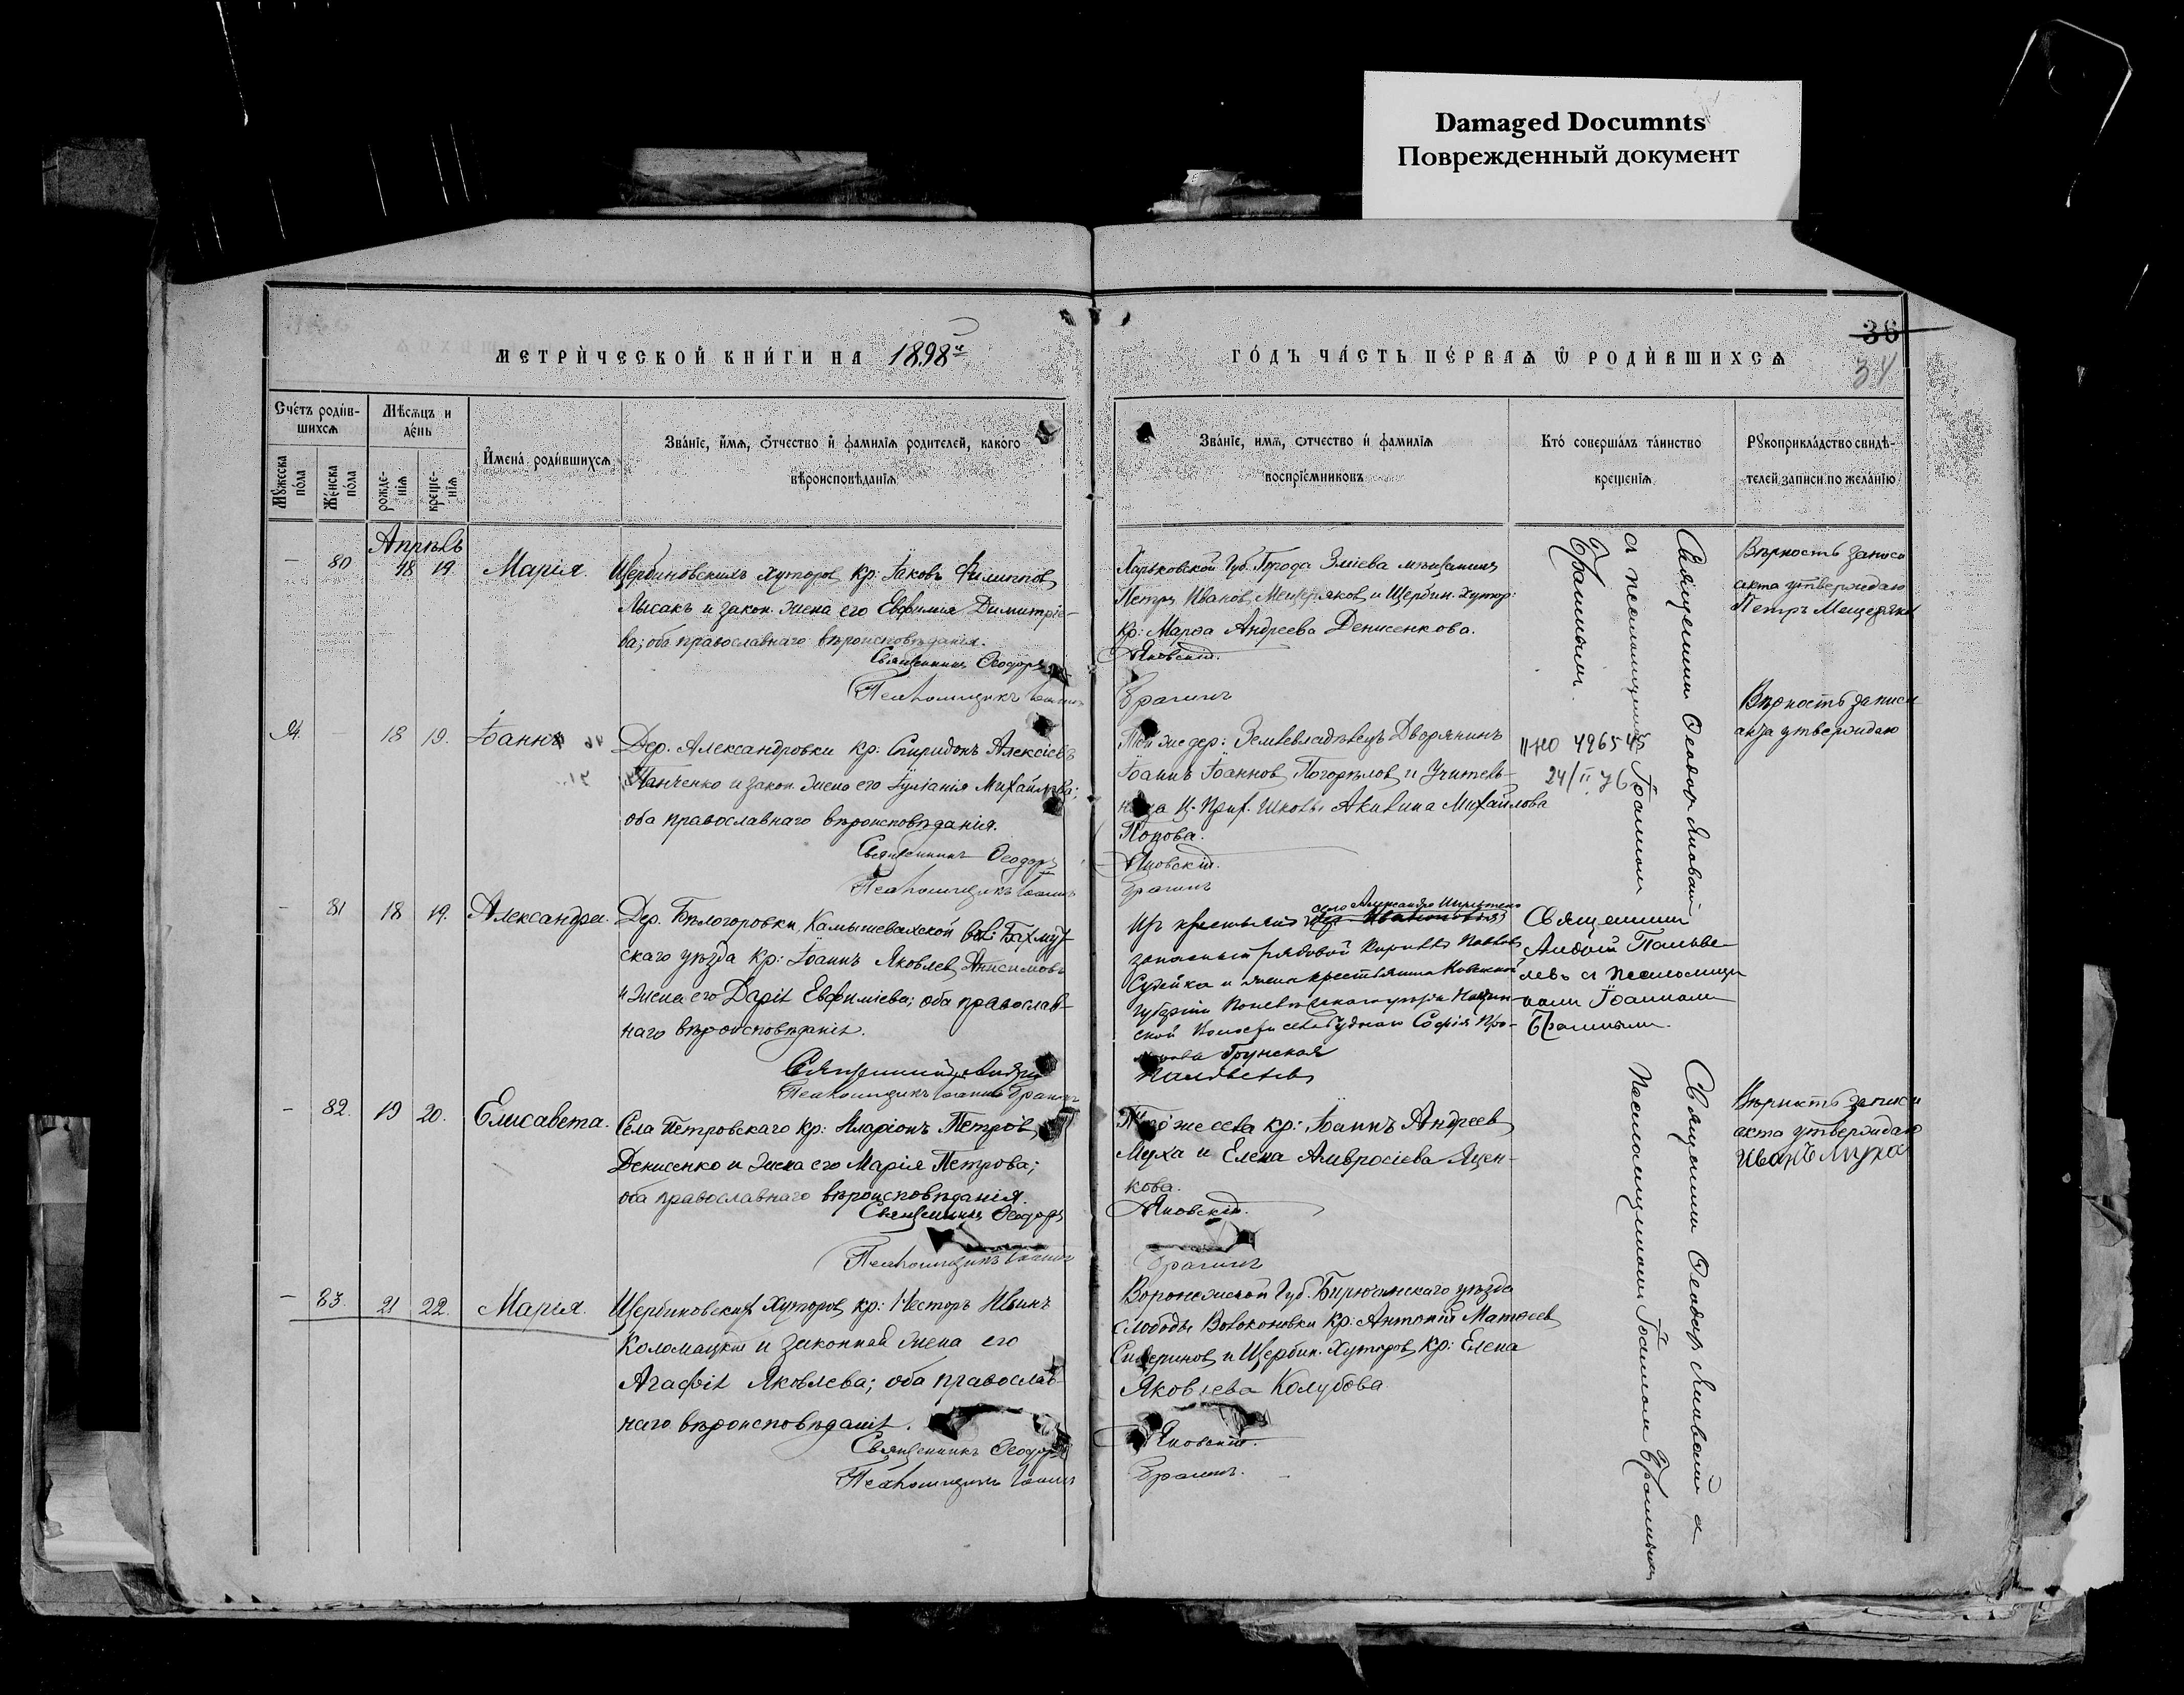 Damaged Documnts
Поврежденный документ
МЕТРИ́ЧЕСКОЙ КНИ́ГИ НА 1898й
ГО́ДЪ ЧА́СТЬ ПЕ́РВАѦ Ѡ РОДИ́ВШИХСѦ
36
34
Сче́тъ роди́в-
шихсѧ
Мѣсѧцъ и
де́нь
Мꙋжеска
по́ла
Же́нска
по́ла
рожде-
нїѧ
креще-
нїѧ
И҆мена́ роди́вшихсѧ
Зва́нїе, и҆́мѧ, ѻ҆́тчество и҆ фамилїѧ родителей, какого
вѣроисповѣданїѧ
Зва́нїе, имѧ, ѻтчество и҆ фамилїѧ
воспрїе́мниковъ
Кто́ соверша́лъ та́инство
крещенїѧ
Рꙋкоприкла́дство свидѣ-
телей записи по жела́нїю
Апрѣль
— 80 18 19. Марія.
Щербиновскихъ Хуторов кр: Іаковъ Филиппов
Лысакъ и закон. жена его Евфимія Димитріе-
ва; оба православнаго вѣроисповѣданія.
Священникъ Ѳеодоръ
Псаломщикъ Іоаннъ
Харьковской Губ. Города Зміева мѣщанинъ
Петръ Иванов Мещеряков и Щербин. Хутор:
кр: Марѳа Андреева Денисенкова.
Яновскій.
Брагинъ
Священникъ Ѳеодоръ Яновскій
съ псаломщикомъ Іоанномъ
Брагинымъ.
Вѣрность записи
акта утверждаю
Петръ Мещеряков
— 18 19. Іоаннъ
Дер. Александровки кр: Спиридонъ Алексіевъ
Панченко и закон. жена его Іуліанія Михайлова;
оба православнаго вѣроисповѣданія.
Священникъ Ѳеодоръ
Псаломщикъ Іоаннъ
Той же дер: Землевладѣлецъ Дворянинъ
Іоаннъ Іоаннов Погорѣлов и Учитель-
ница Ц. Прих. Школы Акилина Михайлова
Попова.
Яновскій.
Брагинъ
II-НО 496545
24/II 76
Вѣрность записи
акта утверждаю
- 81 18 19. Александра.
Дер. Бѣлогоровки, Камышевахской вол: Бахмут-
скаго уѣзда кр: Іоаннъ Яковлев Анисимовъ
и жена его Дарія Евфиміева; оба православ-
наго вѣроисповѣданія.
Священникъ Андрей
Псаломщикъ Іоаннъ Брагинъ
Изъ крестьянъ село Александро
запасный рядовой Кириллъ Павлов
и жена крестьянина Ковенской
губерніи
ской Волости села София Про-
Грунская
Священникъ
Андрей
левъ съ псаломщи-
комъ Іоанномъ
Брагинымъ.
- 82. 19 20. Елисавета.
Села Петровскаго кр: Иларіонъ Петров
Денисенко и жена его Марія Петрова;
оба православнаго вѣроисповѣданія.
Священникъ Ѳеодоръ
Псаломщикъ Іоаннъ
Того же села кр: Іоаннъ Андреев
Муха и Елена Амвросіева Яцен-
кова.
Яновскій.
Брагинъ
Священникъ Ѳеодоръ Яновскій съ
псаломщикомъ Іоанномъ Брагинымъ
Вѣрность записи
акта утверждаю
Иванъ Муха
— 83. 21 22. Марія.
Щербиновских Хуторов кр: Несторъ Ильинъ
Коломацкій и законная жена его
Агаѳія Яковлева; оба православ-
наго вѣроисповѣданія.
Священникъ Ѳеодоръ
Псаломщикъ Іоаннъ
Воронежской Губ. Бирюченскаго уѣзда
слободы Волоконовки кр: Антоній Матѳеев
и Щербин. Хуторов кр: Елена
Яковлева Колубова
Яновскій.
Брагинъ.